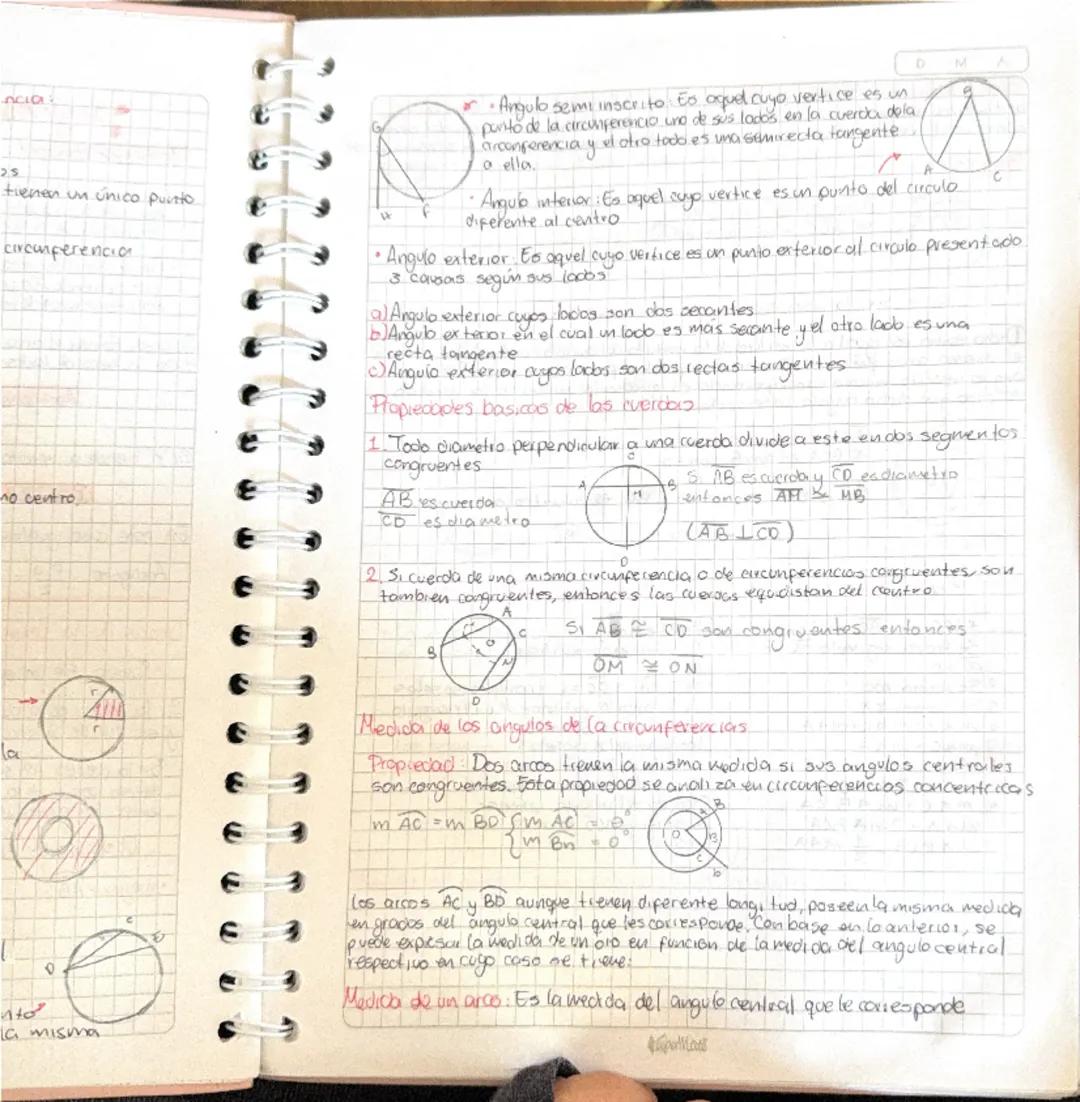 ncia:
os
tienen un único punto
circunferencia
no centro,
r
r
la
c
E
D
nto
la misma
D M A
• Angulo semi inscrito: Es aquel cuyo vertice es un
punto de la circunferencia uno de sus lados en la cuerda dela
circonferencia y el otro lado es una semirecta tangente
a ella.
G
H
F
B
A
C
• Angulo interior: Es aquel cuyo vertice es un punto del circulo
diferente al centro
• Angulo exterior: Es aquel cuyo vertice es un punto exterior al circulo presentado
3 causas según sus lados
a) Angulo exterior cuyos lados son dos secantes
b) Angulo exterior en el cual un lado es mas secante y el otro lado es una
recta tangente
c) Angulo exterior cuyos lados son dos rectas tangentes
Propiedades basicas de las cuerdas
1. Todo diametro perpendicular a una cuerda divide a este en dos segmentos
congruentes
AB es cuerda
CD es diametro
C
A
B
M
D
Si AB es cuerda y CD es diametro
entonces AM ≅ MB
(AB ⊥ CD)
2. Si cuerda de una misma circunferencia o de circunferencias congruentes, son
tambien congruentes, entonces las cuerdas equidistan del centro
A
B
C
O
N
D
Si AB ≅ CD son congruentes entonces
OM ≅ ON
Medida de los angulos de la circunferencias
Propiedad: Dos arcos tienen la misma medida si sus angulos centrales
son congruentes. Esta propiedad se analiza en circunferencias concentricas
m AC = m BD { m AC = θ°
{ m Bn = θ°
A
B
O
B
C
D
Los arcos AC y BD aunque tienen diferente longitud, poseen la misma medida
en grados del angulo central que les corresponde. Con base en lo anterior, se
puede expresar la medida de un arco en funcion de la medida del angulo central
respectivo en cuyo caso se tiene:
Medida de un arco: Es la medida del angulo central que le corresponde